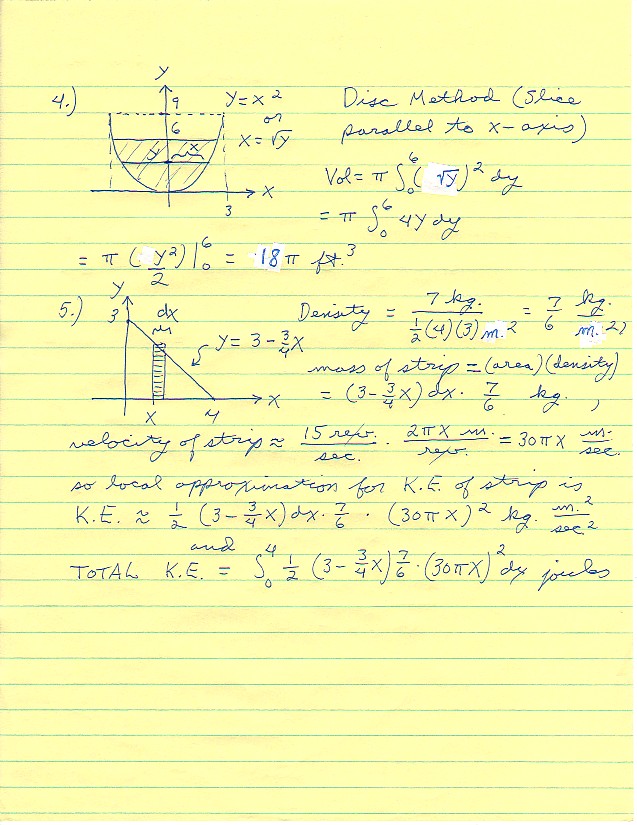 4.) y 9 6 y x x 3 y = x² or x = √y Disc Method (Slice parallel to x-axis)
Vol = π ∫₀⁶ (√y)² dy
= π ∫₀⁶ 4y dy
= π (y²/2) |₀⁶ = 18π ft.³
5.) y 3 dx y = 3 - 3/4 x x 4 x Density = 7 kg. / ½(4)(3) m.² = 7/6 kg. / m.²)
mass of strip = (area)(density)
= (3 - 3/4 x) dx · 7/6 kg. ,
velocity of strip ≈ 15 rev. / sec. · 2πx m. / rev. = 30πx m. / sec.
so local approximation for K.E. of strip is
K.E. ≈ ½ (3 - 3/4 x) dx · 7/6 · (30πx)² kg. m.² / sec²
and
TOTAL K.E. = ∫₀⁴ ½ (3 - 3/4 x) 7/6 · (30πx)² dx joules